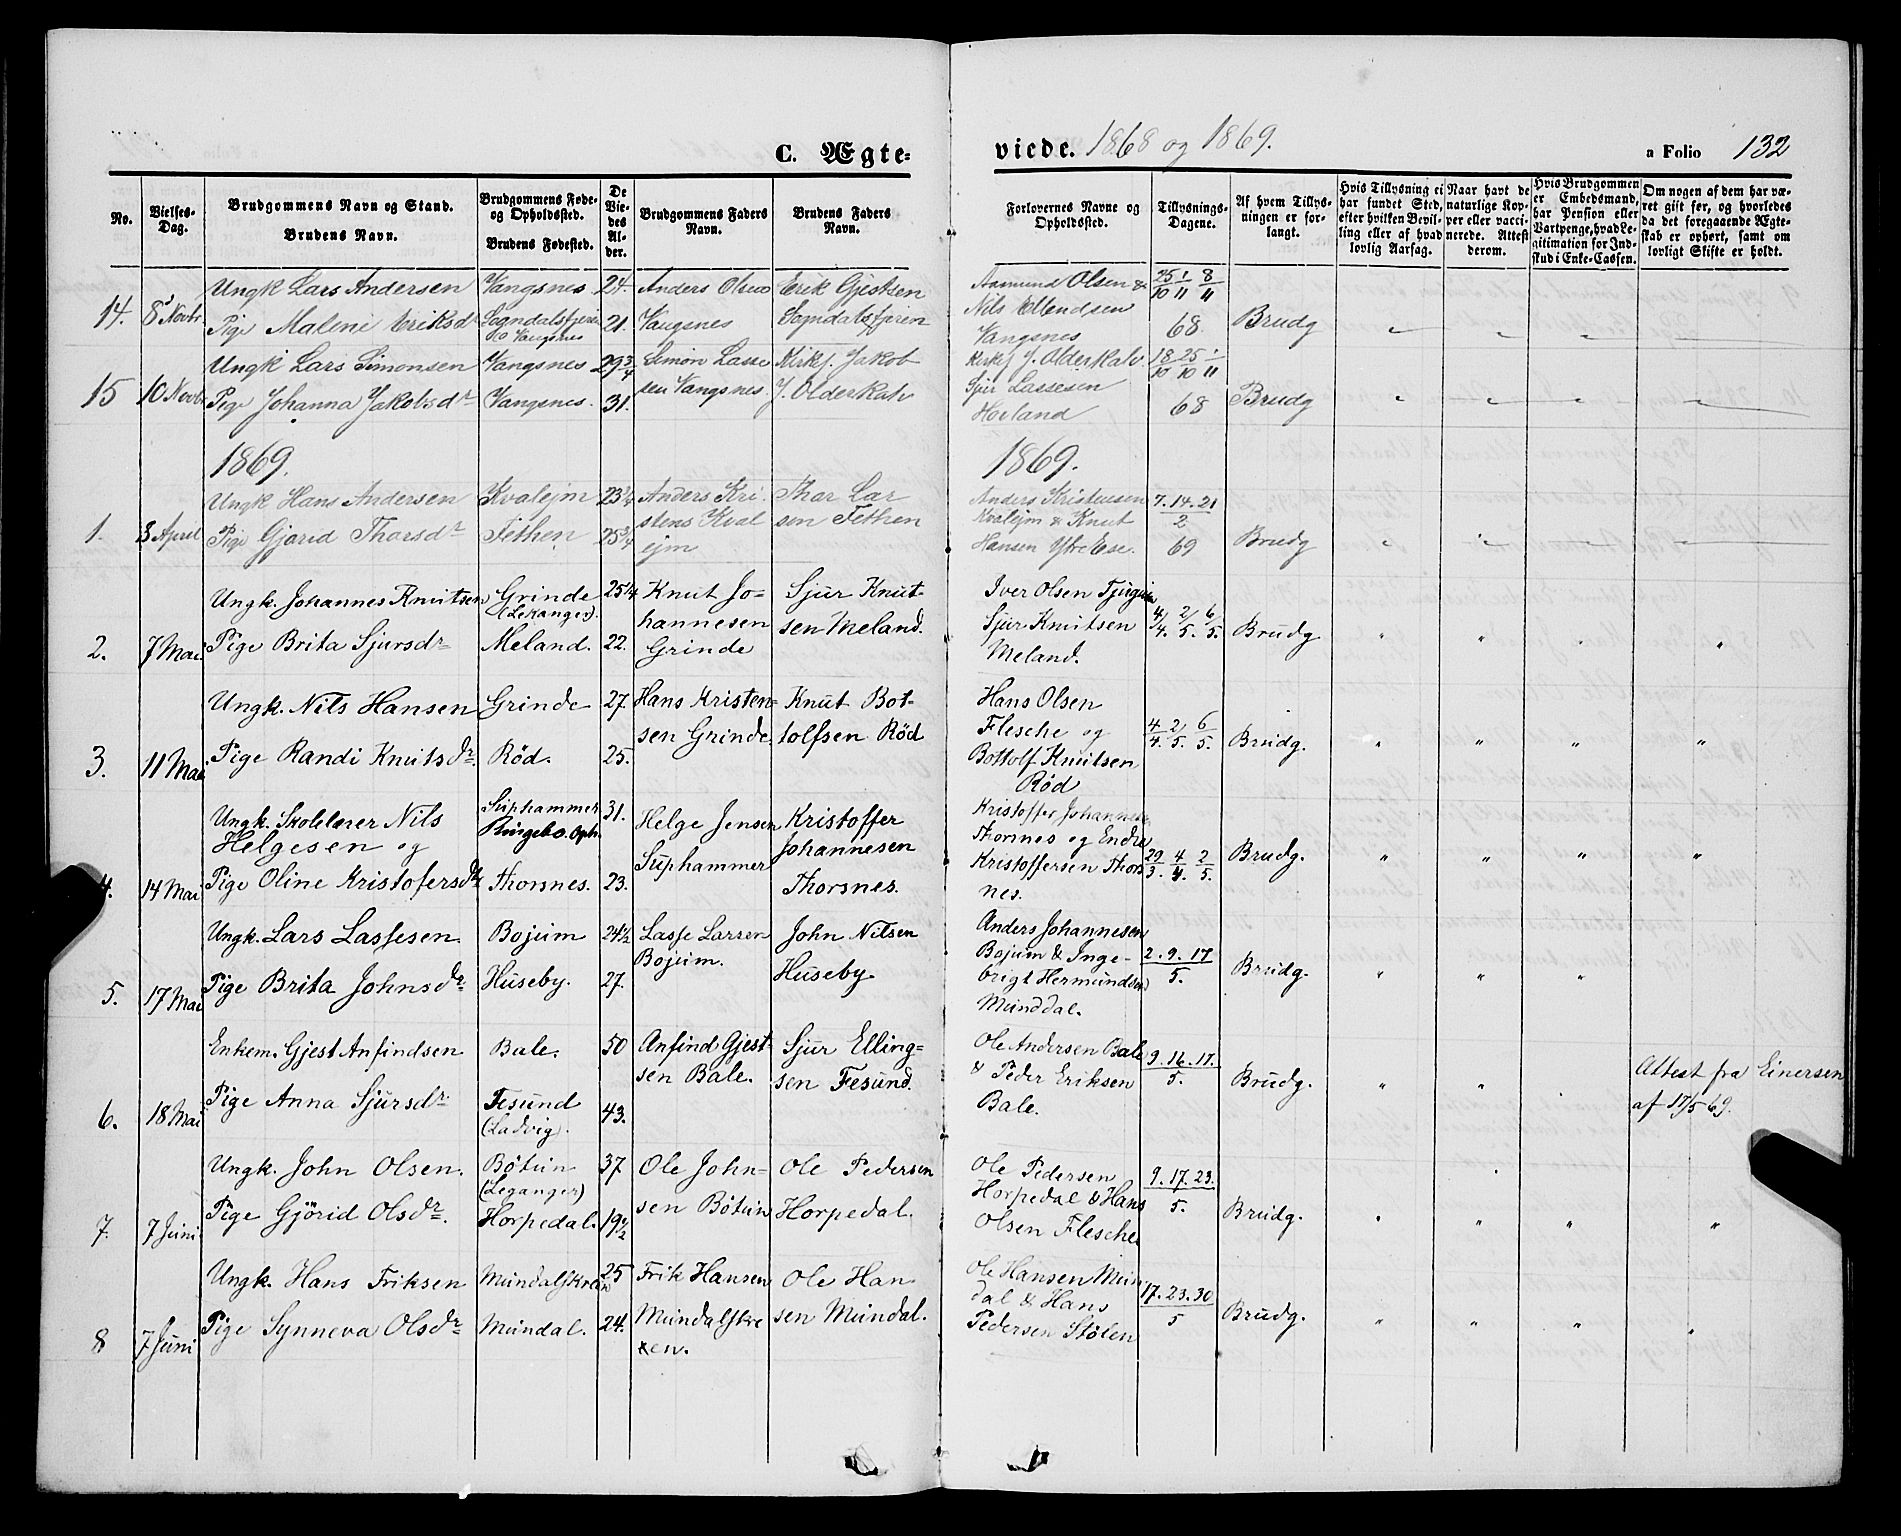 C. Ægte-
viede. 1868 og 1869.
a Folio 132
No.
Vielses-Dag.
Brudgommens Navn og Stand.
Brudens Navn.
Brudgommens Føde- og Opholdssted.
Brudens Fødested.
De Viedes Alder.
Brudgommens Faders Navn.
Brudens Faders Navn.
Forlovernes Navne og Opholdssted.
Tillysnings-Dagene.
Af hvem Tillysningen er forlangt.
Hvis Tillysning ei har fundet Sted, efter hvilken Bevilling eller af hvad lovlig Aarsag.
Naar havt de naturlige Kopper eller vaccinerede. Attest derom.
Hvis Brudgommen er Embedsmand, har Pension eller Vartpenge, hvad Legitimation for Indskud i Enke-Cassen.
Om nogen af dem har været gift før, og hvorledes da det foregaaende Ægteskab er ophørt, samt om lovligt Skifte er holdt.
14. 8 Novbr
Ungk Lars Andersen Vangsnes 24. Anders Olsen Erik Gjestsen
Pige Malene Eriksdr Sogndalsfjeren 21. Vangsnes Sogndalsfjeren
Vangsnes
Aamund Olsen &
Nils Ellendsen
Vangsnes
25/10 1/11 8/11 68 Brudg
15 10 Novbr
Ungk Lars Simonsen Vangsnes 29 3/4 Simon Lasse Kirkj. Jakob
Pige Johanna Jakobsdr Vangsnes. 31. sen Vangsnes J. Olderkah
Kirkj J. Olderkah
Sjur Lassesen
18/10 25/10 1/11 68 Brudg
1869.
1869.
1. 3 April
Ungk Hans Andersen Kvalejm 23 Anders Kri
stens Kval
ejm
Thor Lar
sen Fethen
Pige Gjørid Thorsdr Fethen 25 3/4
Anders Kristensen
Kvalejm & Knut
Hansen Ytre Ese.
7. 14. 21
2
69 Brudg
2. 7 Mai.
Ungk. Johannes Knutsen Grinde 25 1/4 Knut Jo-
(Lekanger). hannesen
Grinde
Sjur Knut-
sen Meland.
Pige Brita Sjursdr Meland. 22.
Iver Olsen Tjugum
Sjur Knutsen
Meland.
4/4. 2/5. 6/5. Brudg
3. 11 Mai
Ungk. Nils Hansen Grinde 27. Hans Kristen-
sen Grinde.
Knut Bot-
tolfsen Rød
Pige Randi Knutsdr. Rød. 25.
Hans Olsen
Flesche og
Bottolf Knutsen
Rød
4/4. 2/5. 6/5. Brudg.
4. 14 Mai
Ungk. Skolelærer Nils
Helgesen og
Suphammer
Ringebo. Oph. 31. Helge Jensen
Suphammer
Kristoffer
Johannesen
Thorsnes.
Pige Oline Kristofersdr Thorsnes. 23.
Kristoffer Johannesen
Thorsnes og Endre
Kristoffersen Thors
nes.
29/3. 4/4. 2/5. Brudg.
5. 17 Mai
Ungk. Lars Lassesen Bojum 24 1/2 Lasse Larsen
Bojum.
John Nilsen
Huseby.
Pige Brita Johnsdr. Huseby. 27.
Anders Johannesen
Bojum & Inge-
brigt Hermundsen
Munddal.
2. 9. 17
5. Brudg.
6. 18 Mai
Enkem. Gjest Anfindsen Bale. 50 Anfind Gjest-
sen Bale.
Sjur Elling-
sen Fesund.
Pige Anna Sjursdr. Fesund
(Ladvig). 43.
Ole Andersen Bale
& Peder Eriksen
Bale.
9. 16. 17.
5. Brudg.
Attest fra Einersen
af 17/5 69.
7. 7 Juni
Ungk. John Olsen. Bøtun
(Leganger) 37 Ole John-
sen Bøtun
Ole Pedersen
Horpedal.
Pige Gjørid Olsdr. Horpedal. 19 1/2
Ole Pedersen
Horpedal & Hans
Olsen Flesche
9. 17. 23.
5. Brudg.
8 7 Juni
Ungk. Hans Friksen Mundalskreen 25 Frik Hansen
Mundalskre
en.
Ole Han
sen Mundal.
Pige Synneva Olsdr Mundal. 24.
Ole Hansen Mun
dal & Hans
Pedersen Stølen
17. 23. 30
5 Brudg.